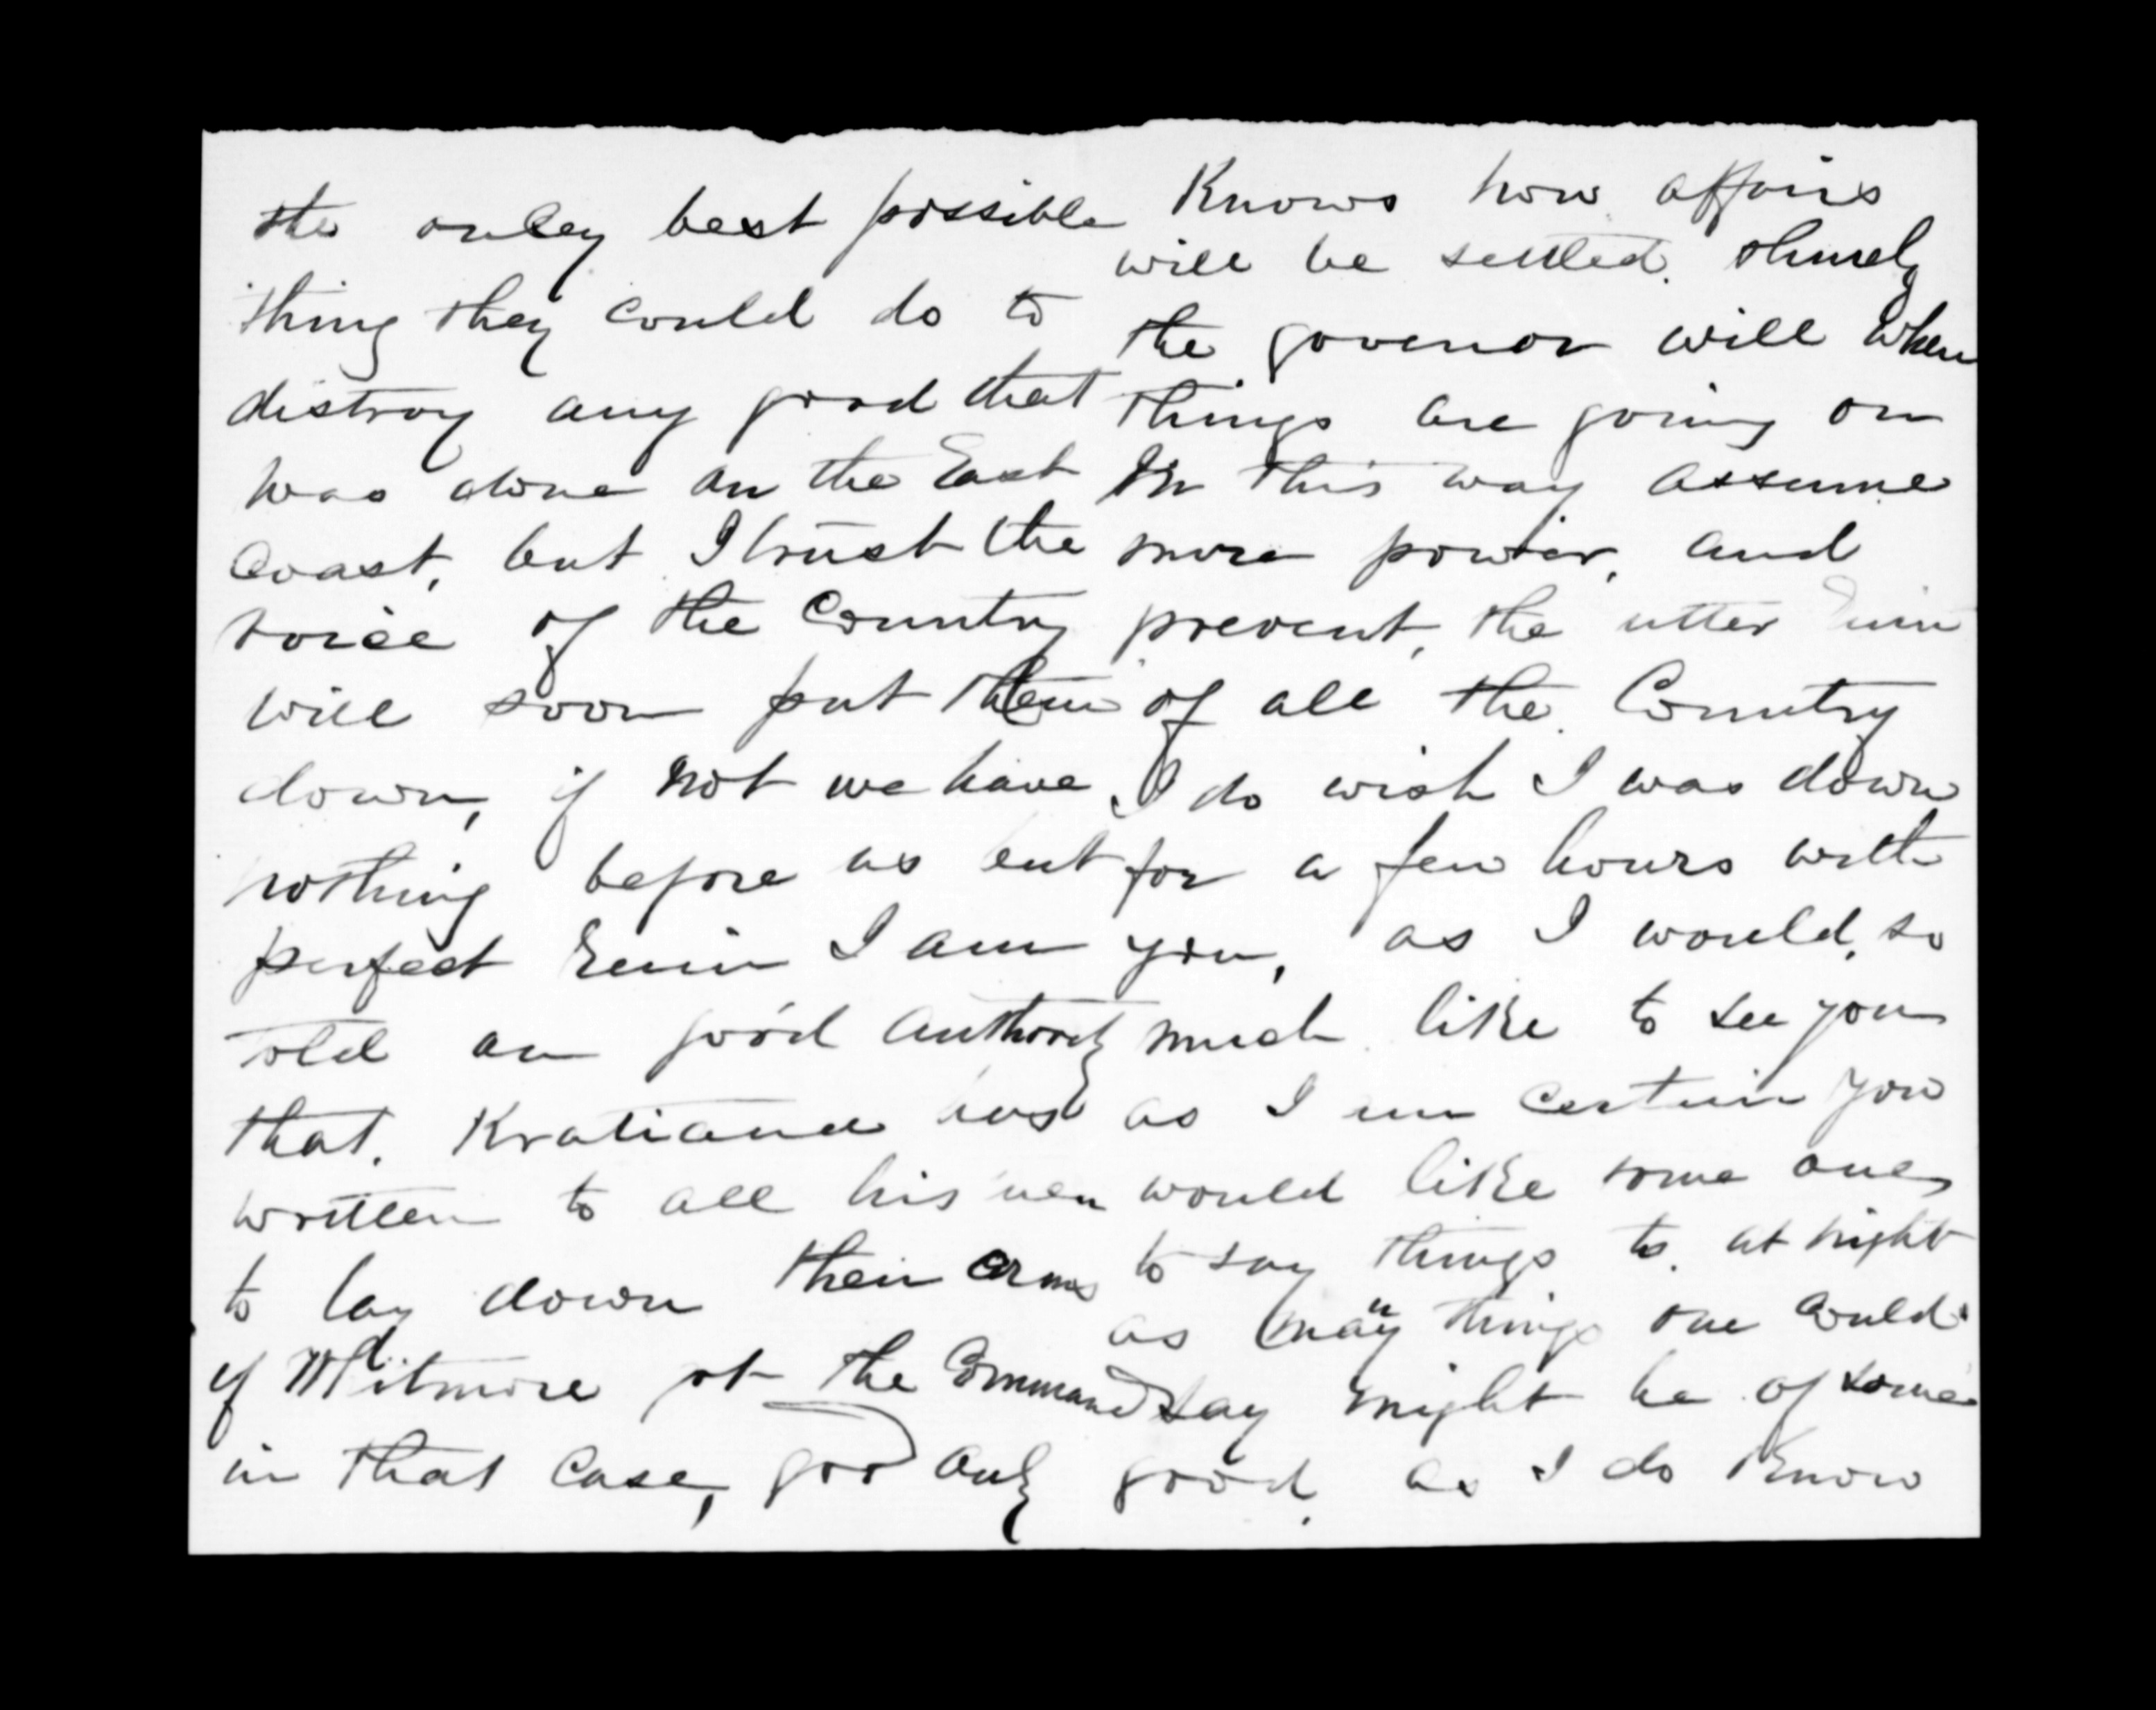 the onley best possible
thing they could do to
distroy any good that
was done on the East
Coast, but I trust the
voice of the Country
will soon put them
down, if not we have
nothing before us but
perfect Ruin I am
told on good Authority
that. Kratiana has
written to all his men
to lay down their arms
if Witmore at the Command
in that Case, god only
Knows how affairs
will be settled.
the govenor will when
things are going on
in this way assume
more power, and
prevent, the utter ruin
of all the Country
I do wish I was down
for a few hours with
you, as I would, so
much like to see you
as I am certain you
would like some one
to say things to. at night
as many things one could
say might be of some
good. as I do Know